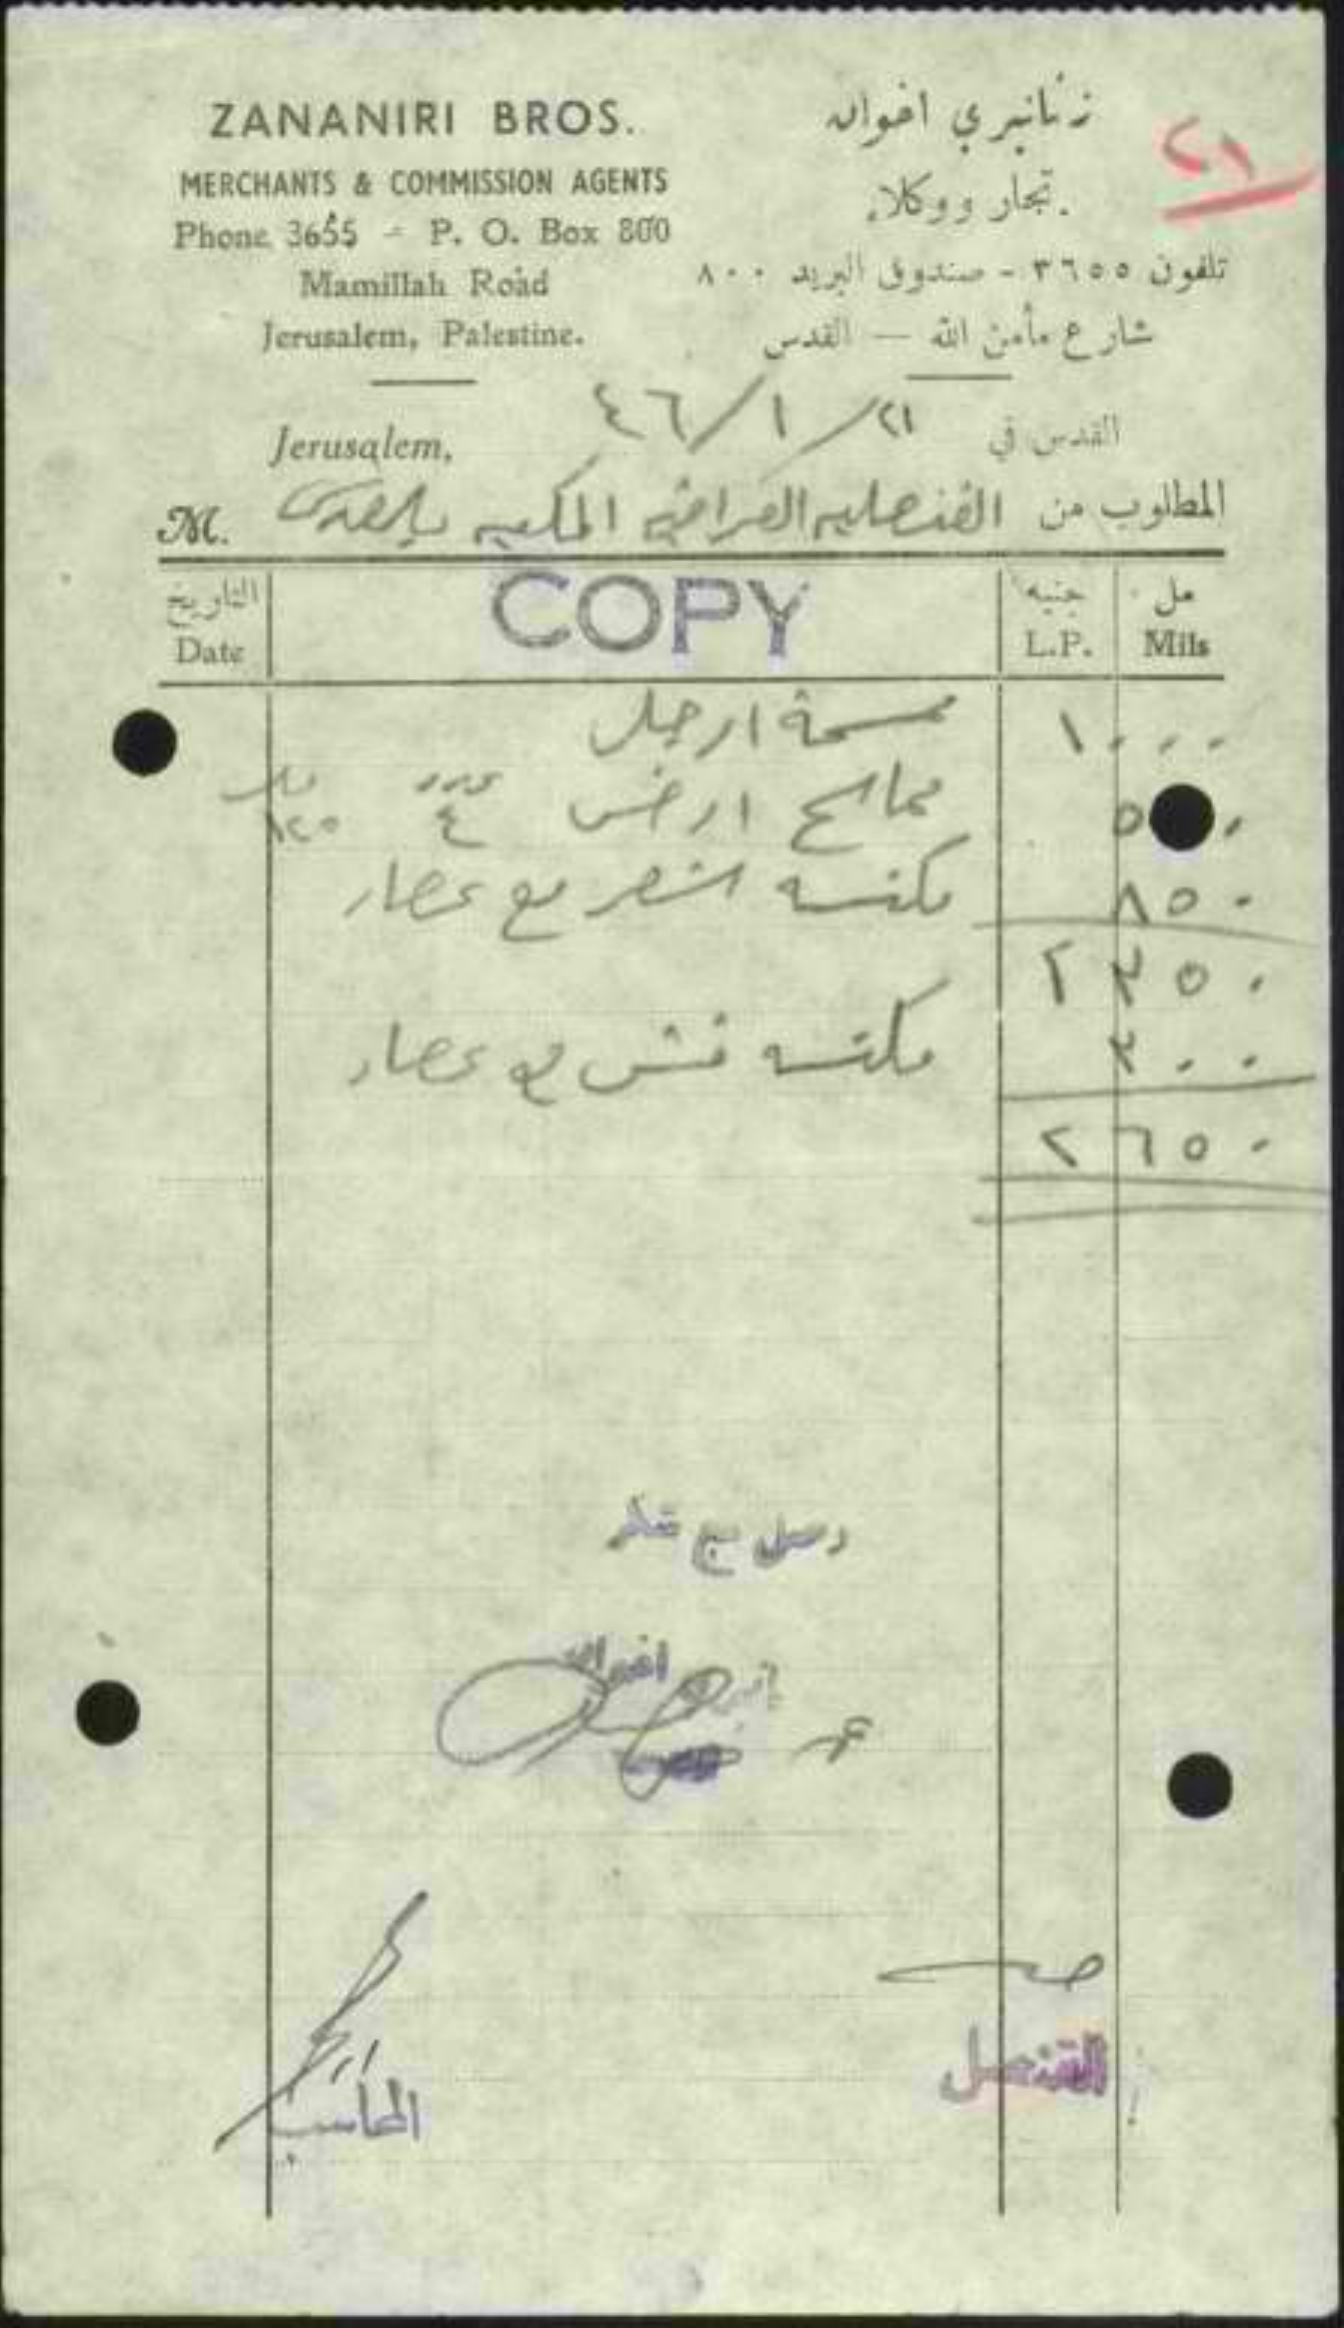 ZANANIRI BROS.
MERCHANTS & COMMISSION AGENTS
Phone 3655 - P. O. Box 800
Mamillah Road
Jerusalem, Palestine.
زنانيري اخوان
تجار ووكلاء
تلفون ٣٦٥٥ - صندوق البريد ٨٠٠
شارع مأمن الله — القدس
٢١
Jerusalem, ٢١/١/٤٦ القدس في
المطلوب من القنصليه العراقيه الملكيه بالقدس M.
التاريخ Date
COPY
جنيه L.P.
مل Mils
ممسحة ارجل ١٠٠٠
مماسح ارض عدد ٤ ١٢٥ ٥٠
مكنسه شعر مع عصا ٨٥٠
٢٣٥٠
مكنسه قش مع عصا ٣٠٠
٢٦٥٠
وصل
اخوان
القنصل
المحاسب